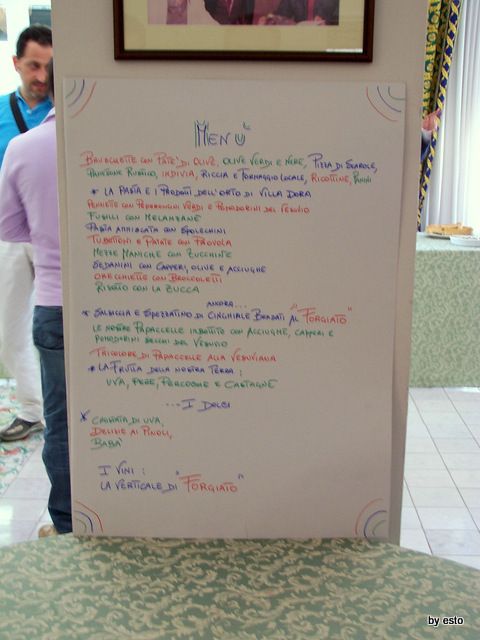 MENÙ
BRUSCHETTE CON PATE' DI OLIVE, OLIVE VERDI E NERE, PIZZA DI SCAROLE,
PANETTONE RUSTICO, INDIVIA, RICCIA E FORMAGGIO LOCALE, RICOTTINE, PANINI
* LA PASTA E I PRODOTTI DELL'ORTO DI VILLA DORA
PENNETTE CON PEPERONCINI VERDI E POMODORINI DEL VESUVIO
FUSILLI CON MELANZANE
PASTA AMMISCATA CON SPOLECHINI
TUBETTONI E PATATE CON PROVOLA
MEZZE MANICHE CON ZUCCHINE
SEDANINI CON CAPPERI, OLIVE E ACCIUGHE
ORECCHIETTE CON BROCCOLETTI
RISOTTO CON LA ZUCCA
ANCORA...
* SALSICCIA E SPEZZATINO DI CINGHIALE BRASATI AL "FORGIATO"
LE NOSTRE PAPACCELLE IMBOTTITE CON ACCIUGHE, CAPPERI E
POMODORINI SECCHI DEL VESUVIO
TRICOLORE DI PAPACCELLE ALLA VESUVIANA
* LA FRUTTA DELLA NOSTRA TERRA:
UVA, PERE, PERCOCHE E CASTAGNE
---- I DOLCI
* CROSTATA DI UVA,
DELIZIE AI PINOLI,
BABA'
I VINI:
LA VERTICALE DI "FORGIATO"
by esto